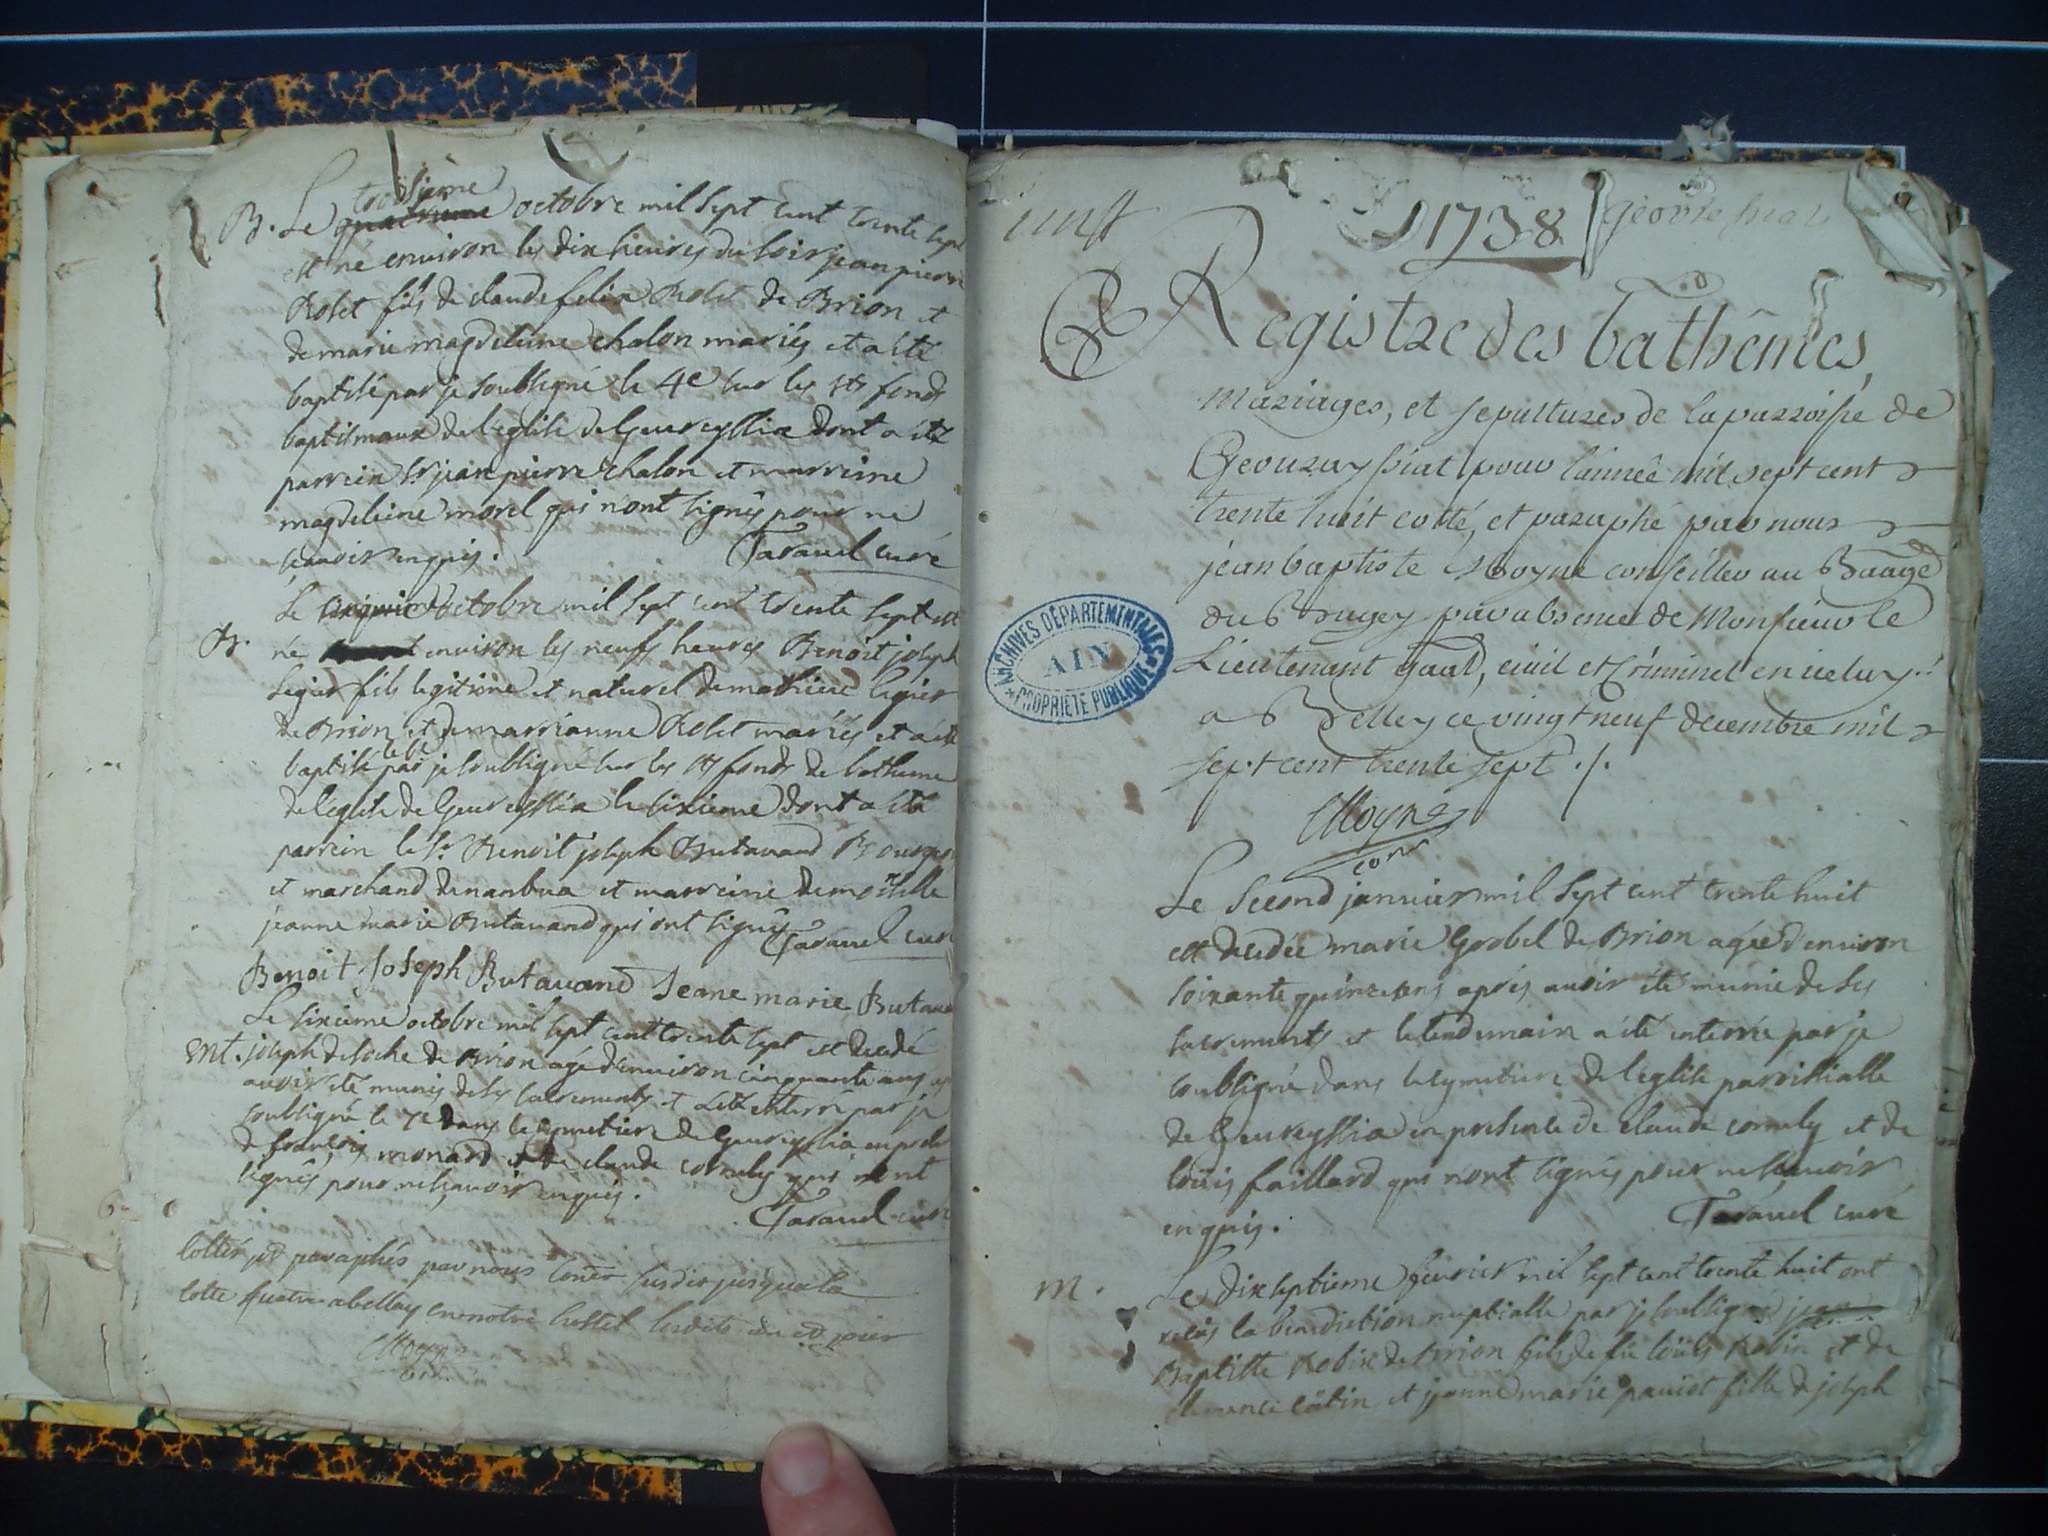 troisième
B. Le quatrieme octobre mil sept cent trente sept
est né environ les dix heures du soir jean pierre
Rolet fils de claude felix Rolet de Brion et
de marie magdeleine chalon mariés et a été
baptisé par je soubsigné le 4e sur les sts fonds
baptismaux de l'eglise de Geureyssia dont a été
parrein sr jean pierre chalon et marreine
magdeleine morel qui n'ont signés pour ne
sçavoir enquis. Taravel curé
Le cinquie octobre mil sept cent trente sept est
B. né environ les neufs heures Benoit joseph
legier fils legitime et naturel de mathieu legier
de Brion et de marrianne Rolet mariés et a été
baptisé par je soubsigné sur les sts fonds de batheme
de l'eglise de Geureyssia le sixieme dont a été
parrein le sr Benoit joseph Butavand Bourgeois
et marchand de nantua et marreine demoiselle
jeanne marie Butavand qui ont signés Taravel curé
Benoit Joseph Butavand Jeane marie Butavand
Le sixieme octobre mil sept cent trente sept est decedé
Ent. joseph deloche de Brion agé d'environ cinquante ans
avoir été munis de ses sacrements et a été enterré par je
soubsigné le 7e dans le cymetiere de Geureyssia en presence
de françois monard et de claude cornuly qui n'ont
signés pour ne sçavoir enquis.
Taravel curé
Cottés et paraphés par nous conser susdit jusqu'a la
cotte quatre a belley en notre hostel lesdits an et jour
Moyne
conr
1738
Registre des bathêmes,
Mariages, et sepultures de la parroisse de
Geourayssiat pour l'année mil sept cent
trente huit cotté, et paraphé par nous
jean baptiste Moyne conseiller au Baage
du Bugey par absence de Monsieur le
Lieutenant gãal, civil et Criminel en iceluy
a Belley ce vingt neuf decembre mil
sept cent trente sept ./.
Moyne
conr
Le second janvier mil sept cent trente huit
est decedée marie Gerbel de Brion agée d'environ
soixante quinze ans aprés avoir été munie de ses
sacrements et le lendemain a été enterrée par je
soubsigné dans le cymetiere de l'eglise parroissialle
de Geureyssia en presence de claude cornuly et de
loüis faillard qui n'ont signés pour ne sçavoir
enquis. Taravel curé
M. Le dix septieme fevrier mil sept cent trente huit ont
reçus la benediction nuptialle par je soubsigné jean
Baptiste Robin de Brion fils de fû loüis Robin et de
clemence Cätin et jeanne marie paviot fille de joseph
ARCHIVES DÉPARTEMENTALES
AIN
PROPRIÉTÉ PUBLIQUE